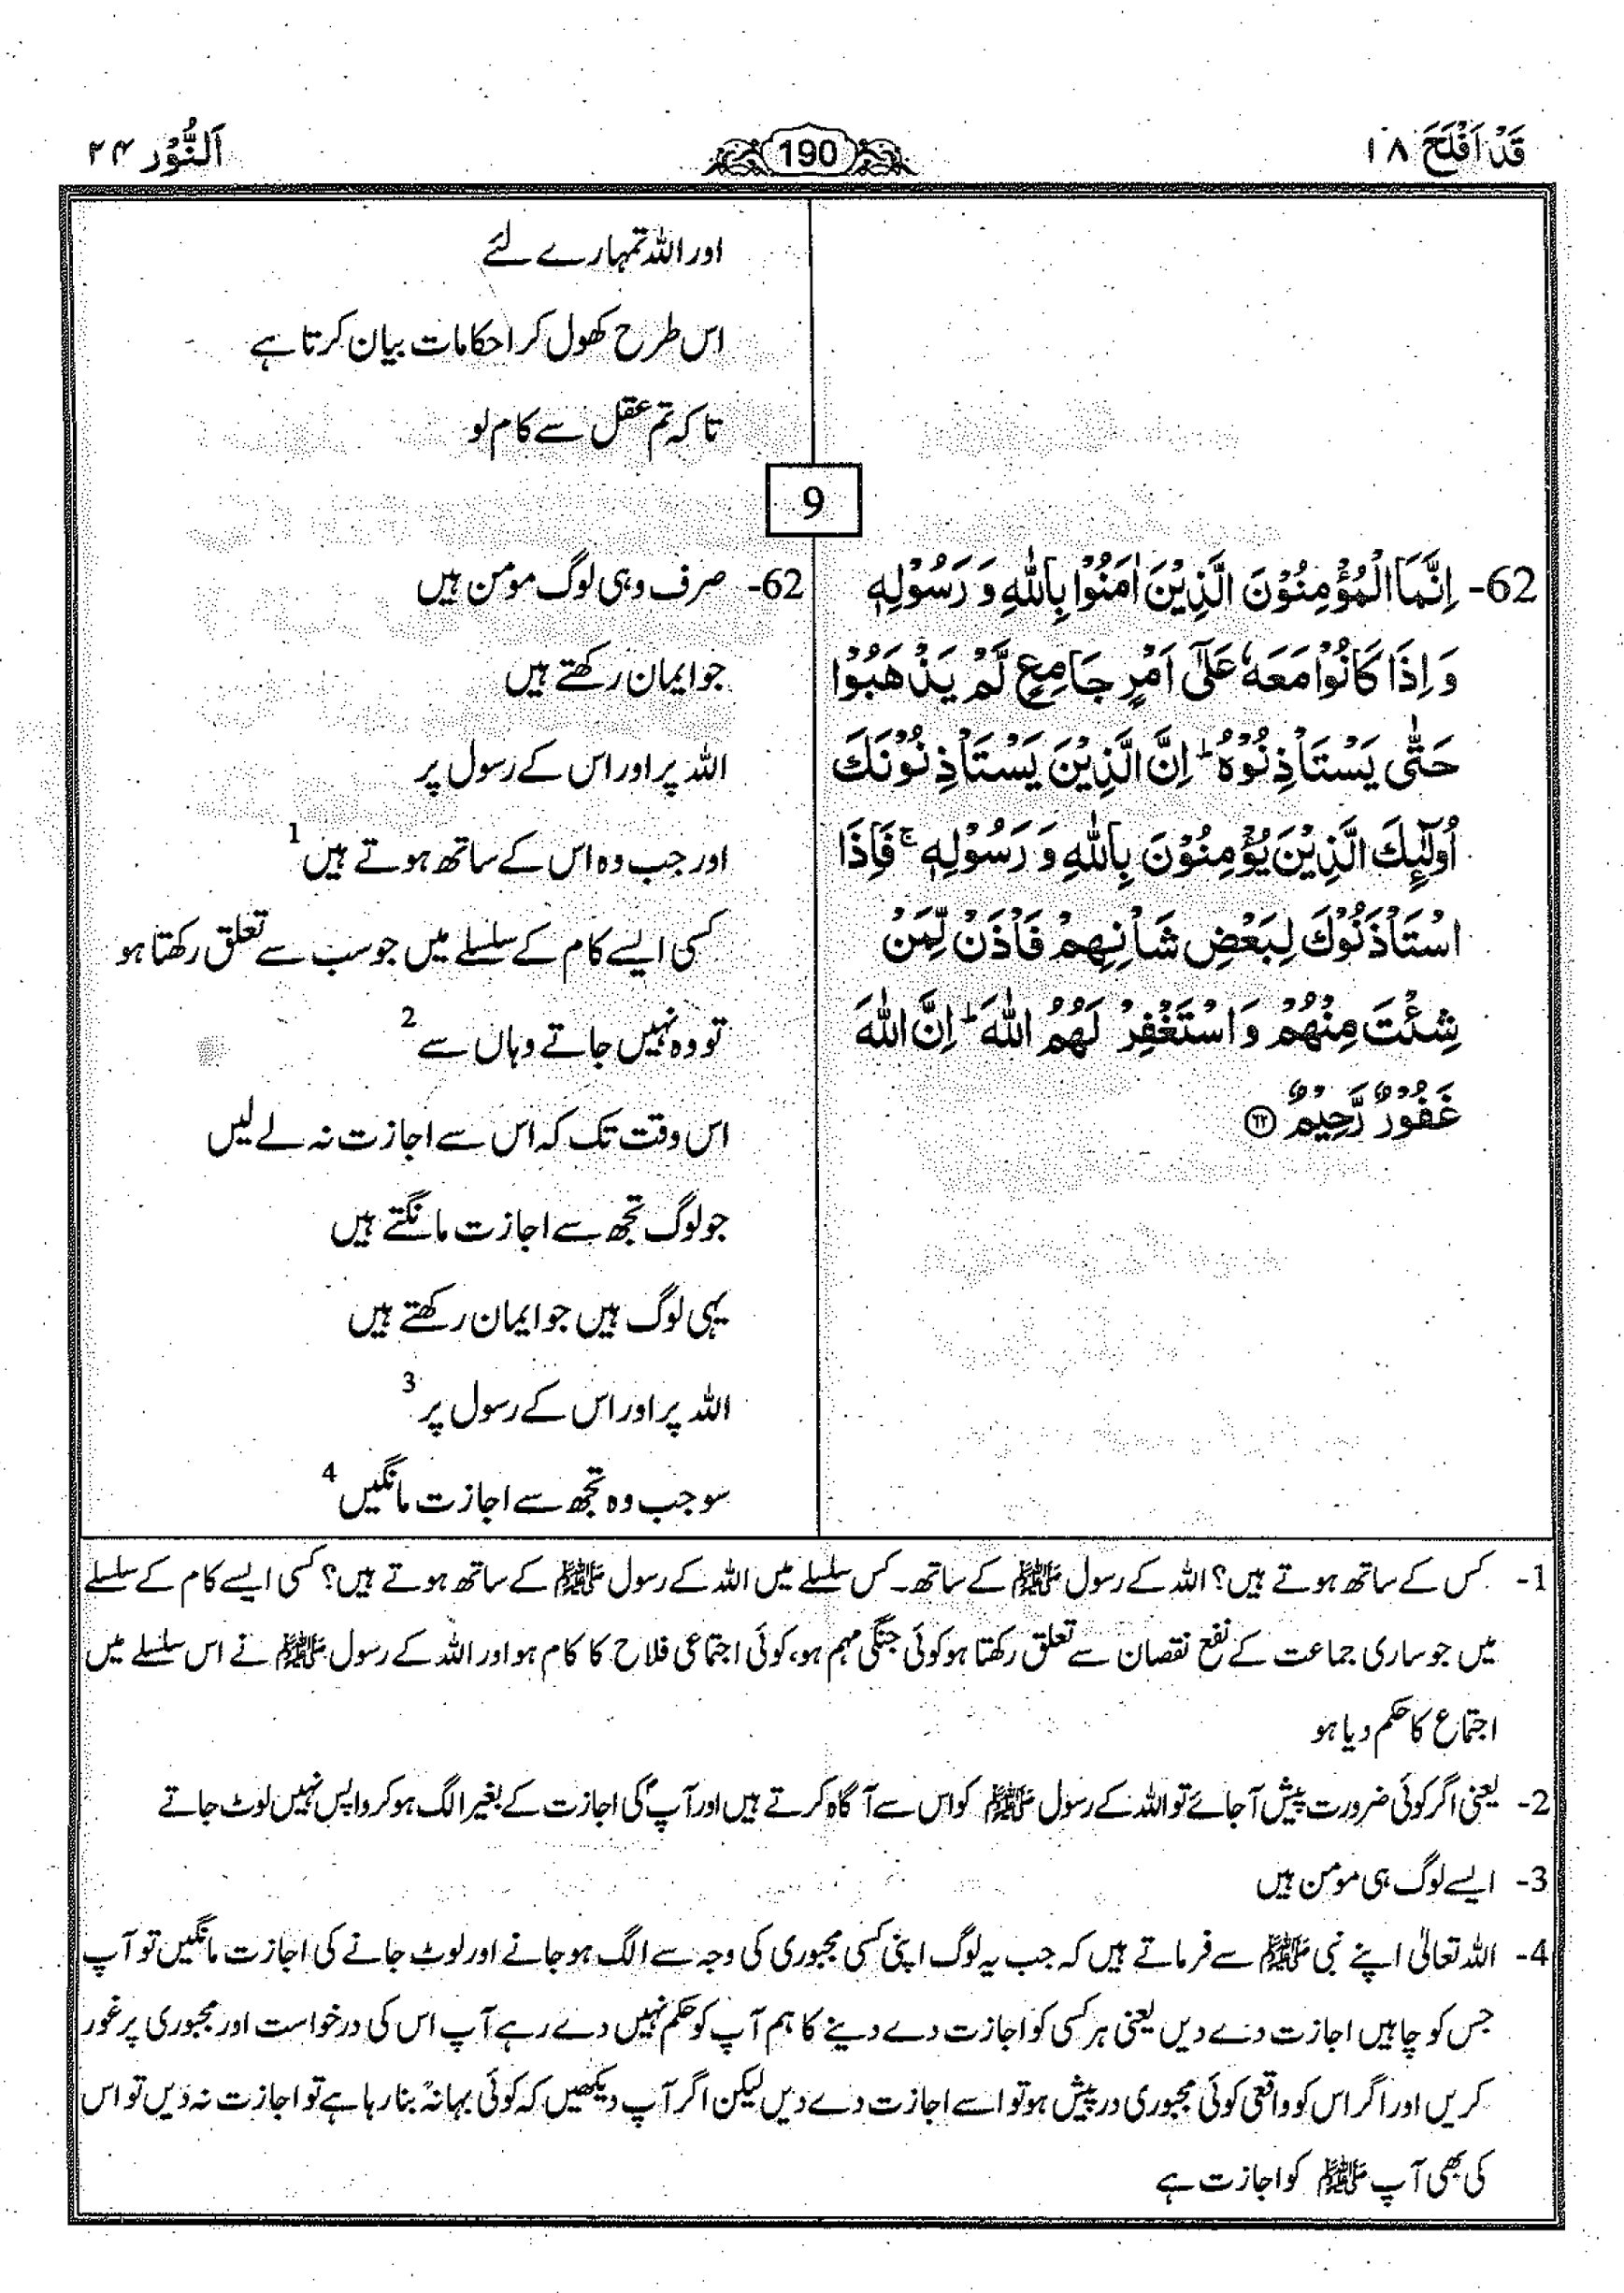 قَدْ اَفْلَحَ ۱۸
190
اَلنُّوْر ۲۴
اور اللہ تمہارے لئے
اس طرح کھول کر احکامات بیان کرتا ہے
تاکہ تم عقل سے کام لو
9
62- اِنَّمَا الْمُؤْمِنُوْنَ الَّذِيْنَ اٰمَنُوْا بِاللّٰهِ وَ رَسُوْلِهٖ
وَ اِذَا كَانُوْا مَعَهٗ عَلٰۤى اَمْرٍ جَامِعٍ لَّمْ يَذْهَبُوْا
حَتّٰى يَسْتَاْذِنُوْهُ ؕ اِنَّ الَّذِيْنَ يَسْتَاْذِنُوْنَكَ
اُولٰٓئِكَ الَّذِيْنَ يُؤْمِنُوْنَ بِاللّٰهِ وَ رَسُوْلِهٖ ۚ فَاِذَا
اسْتَاْذَنُوْكَ لِبَعْضِ شَاْنِهِمْ فَاْذَنْ لِّمَنْ
شِئْتَ مِنْهُمْ وَ اسْتَغْفِرْ لَهُمُ اللّٰهَ ؕ اِنَّ اللّٰهَ
غَفُوْرٌ رَّحِيْمٌ ۶۲
62- صرف وہی لوگ مومن ہیں
جو ایمان رکھتے ہیں
اللہ پر اور اس کے رسول پر
اور جب وہ اس کے ساتھ ہوتے ہیں 1
کسی ایسے کام کے سلسلے میں جو سب سے تعلق رکھتا ہو
تو وہ نہیں جاتے وہاں سے 2
اس وقت تک کہ اس سے اجازت نہ لے لیں
جو لوگ تجھ سے اجازت مانگتے ہیں
یہی لوگ ہیں جو ایمان رکھتے ہیں
اللہ پر اور اس کے رسول پر 3
سو جب وہ تجھ سے اجازت مانگیں 4
1- کس کے ساتھ ہوتے ہیں؟ اللہ کے رسول ﷺ کے ساتھ۔ کس سلسلے میں اللہ کے رسول ﷺ کے ساتھ ہوتے ہیں؟ کسی ایسے کام کے سلسلے
میں جو ساری جماعت کے نفع نقصان سے تعلق رکھتا ہو کوئی جنگی مہم ہو، کوئی اجتماعی فلاح کا کام ہو اور اللہ کے رسول ﷺ نے اس سلسلے میں
اجتماع کا حکم دیا ہو
2- یعنی اگر کوئی ضرورت پیش آ جائے تو اللہ کے رسول ﷺ کو اس سے آگاہ کرتے ہیں اور آپؐ کی اجازت کے بغیر الگ ہو کر واپس نہیں لوٹ جاتے
3- ایسے لوگ ہی مومن ہیں
4- اللہ تعالیٰ اپنے نبی ﷺ سے فرماتے ہیں کہ جب یہ لوگ اپنی کسی مجبوری کی وجہ سے الگ ہو جانے اور لوٹ جانے کی اجازت مانگیں تو آپ
جس کو چاہیں اجازت دے دیں یعنی ہر کسی کو اجازت دے دینے کا ہم آپ کو حکم نہیں دے رہے آپ اس کی درخواست اور مجبوری پر غور
کریں اور اگر اس کو واقعی کوئی مجبوری درپیش ہو تو اسے اجازت دے دیں لیکن اگر آپ دیکھیں کہ کوئی بہانہ بنا رہا ہے تو اجازت نہ دیں تو اس
کی بھی آپ ﷺ کو اجازت ہے